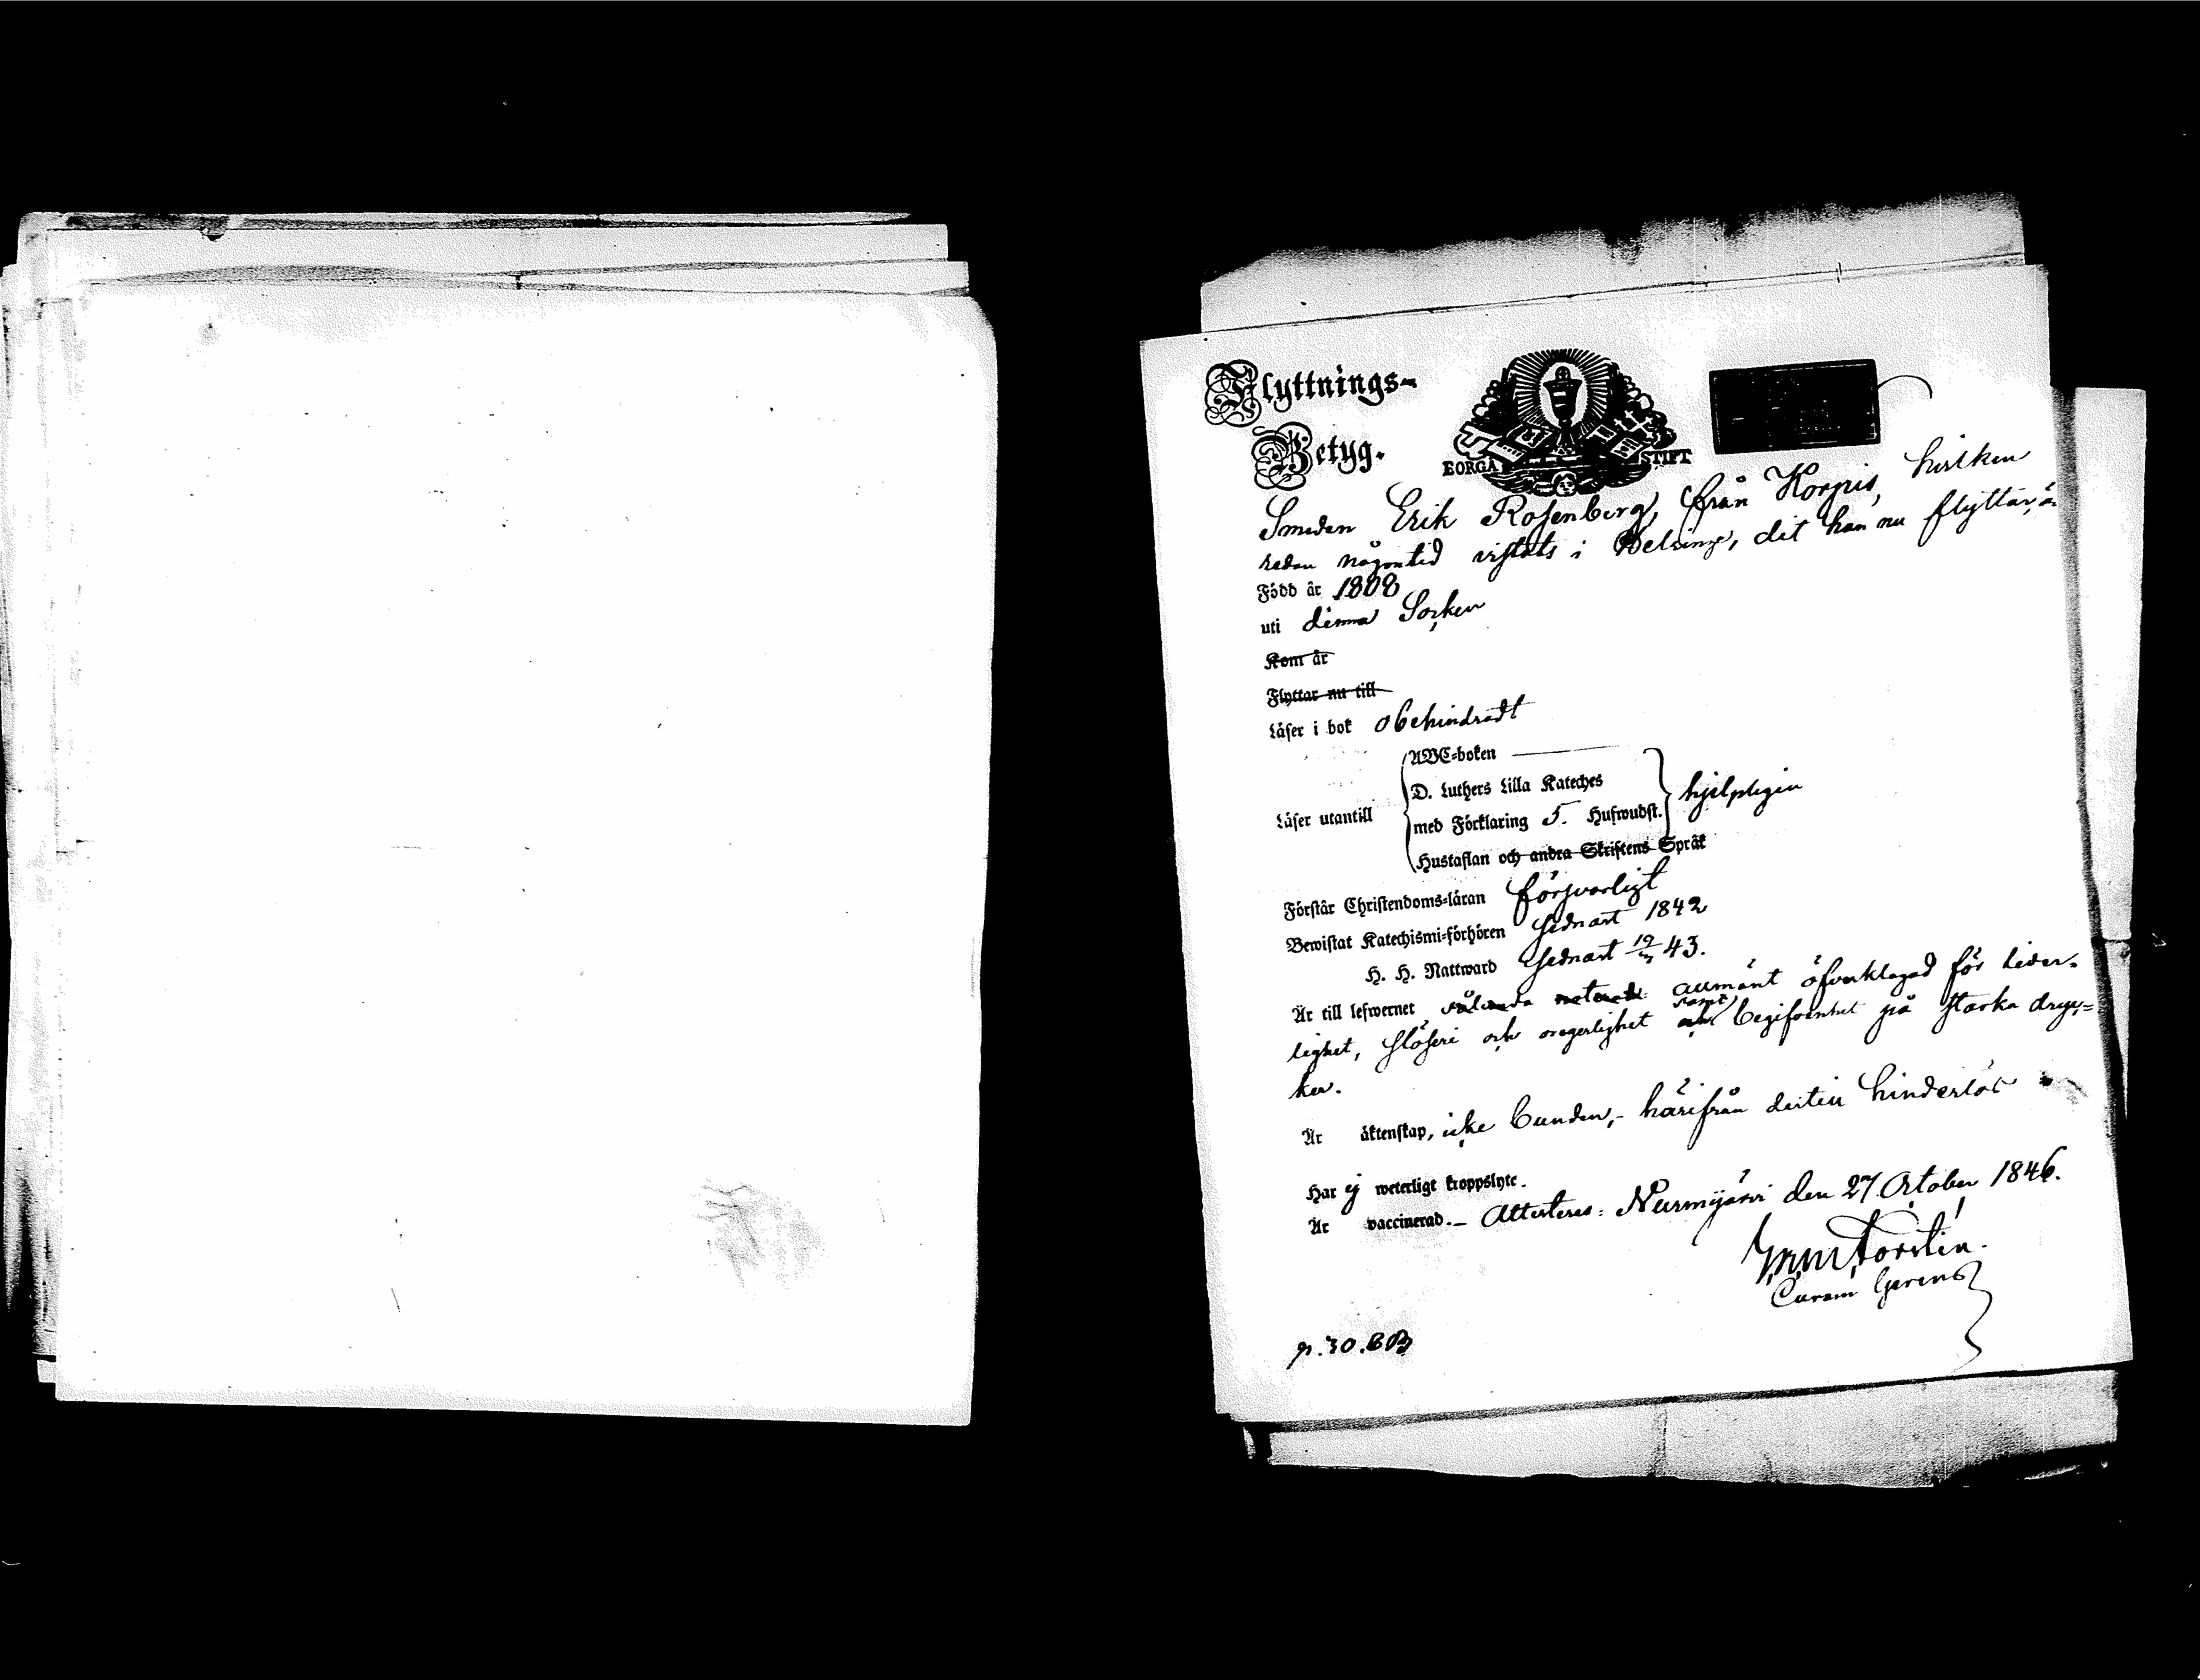 Flyttnings-
Betyg.
BORGÅ STIFT
Smeden Erik Rosenberg, från Korpis, hvilken
redan någontid vistats i Helsinge, dit han nu flyttar, är
Född år 1808
uti denna Socken
Kom år
Flyttar nu till
Läser i bok obehindradt
ABC-boken
D. Luthers Lilla Kateches
Läser utantill med Förklaring 5. Hufwudst. hjelpligen
Hustaflan och andra Skriftens Språk
Förstår Christendoms-läran försvarligt
Bewistat Katechismi-förhören sednast 1842
H. H. Nattward sednast 19/3 43.
Är till lefwernet allmänt öfverklagad för lider-
lighet, slöseri och oregerlighet samt begifvenhet på starka dryc-
ker.
Är äktenskap, icke bunden,- härifrån dertill hinderlös
Har ej weterligt kroppslyte.
Är vaccinerad.- Attesteras: Nurmijärvi den 27 October 1846.
Forstén.
Curam Gerens
p. 30. BB